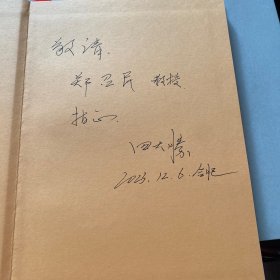 敬请
郑卫民 教授
指正
田大㬢
2023.12.6.合肥